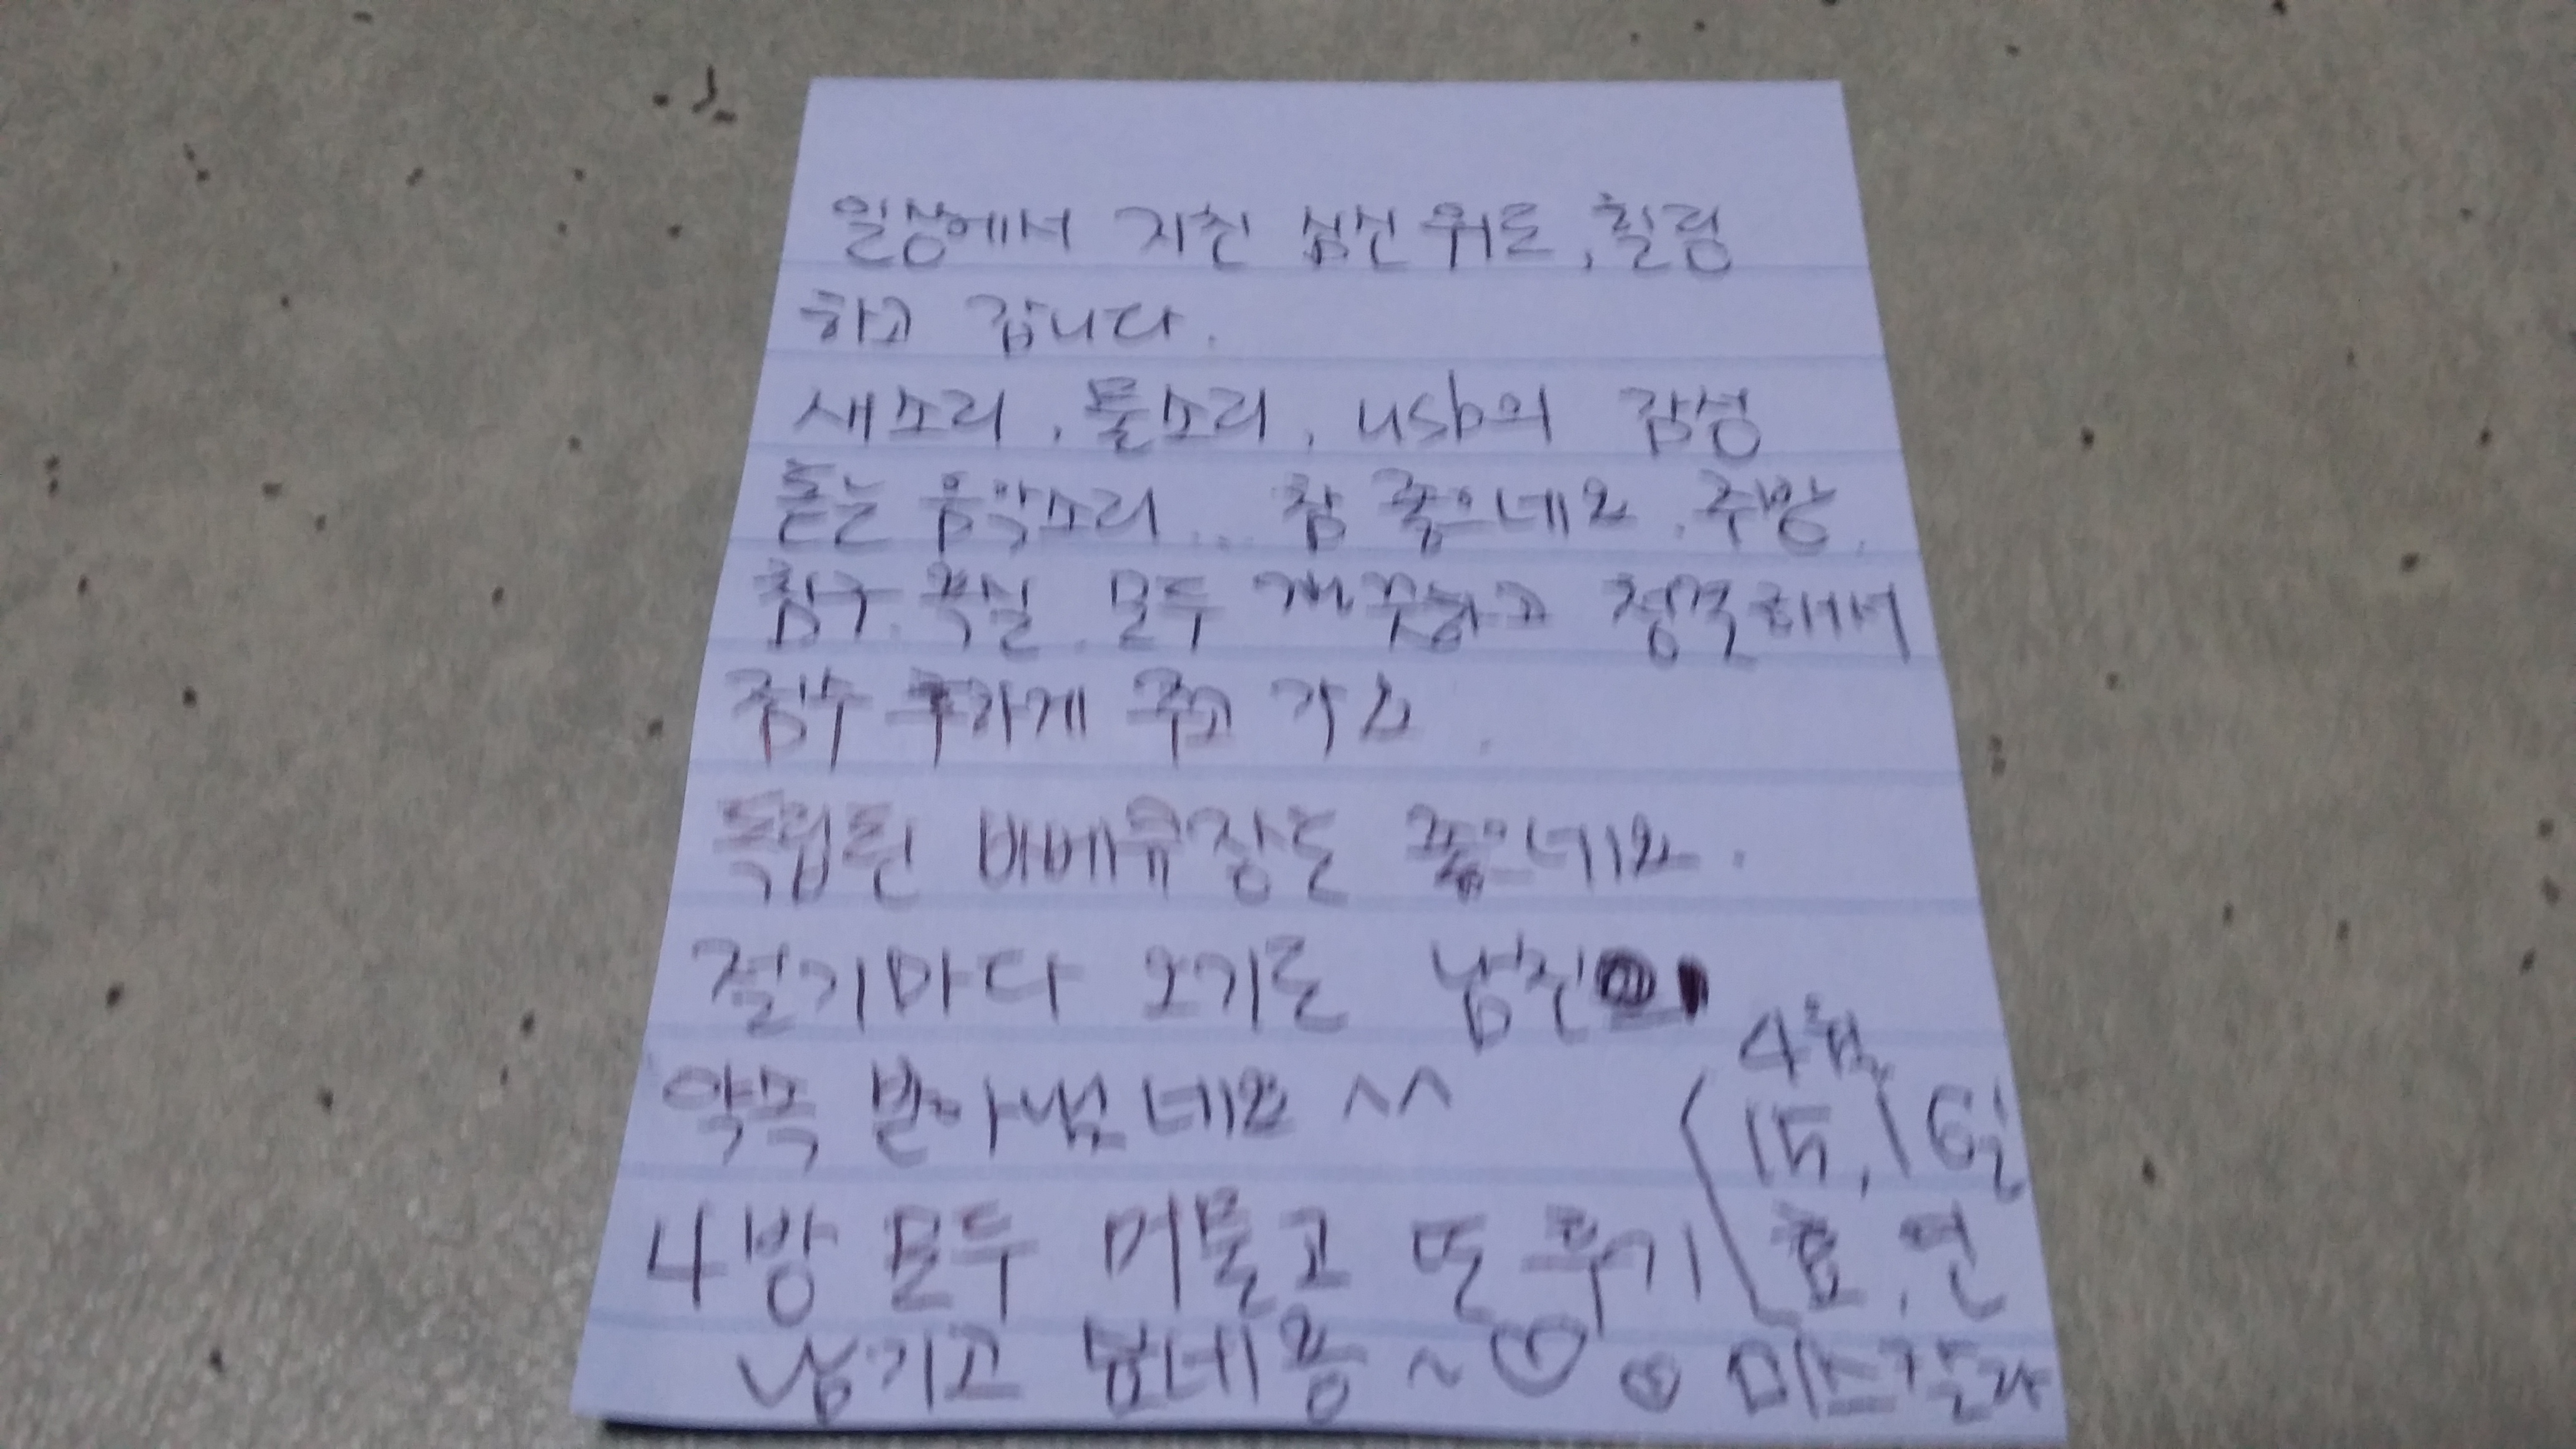 일상에서 지친 심신 위로, 힐링
하고 갑니다.
새소리, 물소리, usb의 감성
돋는 음악소리... 참 좋으네요. 주방,
침구, 욕실, 모두 깨끗하고 청결해서
점수 후하게 주고 가요.
독립된 바베큐장도 좋으네요.
절기마다 오기로 남친
약속 받아냈네요 ^^
4방 모두 머물고 또 후기
남기고 싶네용~
4월
15, 16일
효, 연